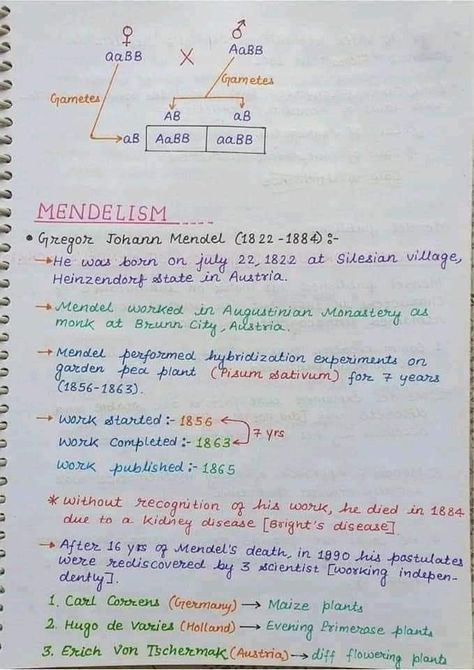 ♀ ♂
aaBB X AaBB
Gametes
Gametes
AB aB
aB AaBB aaBB
MENDELISM
• Gregor Johann Mendel (1822-1884) :-
→ He was born on july 22, 1822 at Silesian village,
Heinzendorf state in Austria.
→ Mendel worked in Augustinian Monastery as
monk at Brunn City, Austria.
→ Mendel performed hybridization experiments on
garden pea plant (Pisum Sativum) for 7 years
(1856-1863).
→ Work started :- 1856
7 yrs
Work Completed :- 1863
Work published :- 1865
* Without recognition of his work, he died in 1884
due to a kidney disease [Bright's disease]
→ After 16 yrs of Mendel's death, in 1990 his postulates
were rediscovered by 3 scientist [working indepen-
dently].
1. Carl Correns (Germany) → Maize plants
2. Hugo de Varies (Holland) → Evening Primerose plants
3. Erich Von Tschermak (Austria) → diff flowering plants